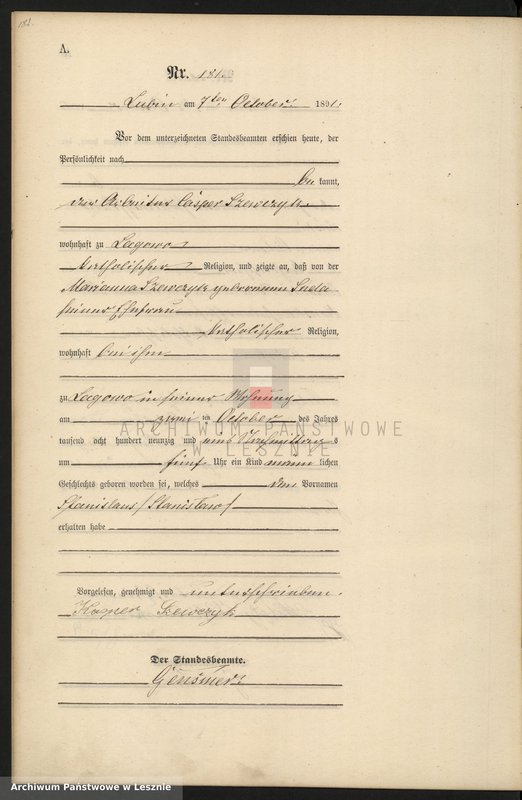 181.
A.
Nr. 181.
Lubin am 7ten October 1891.
Vor dem unterzeichneten Standesbeamten erschien heute, der
Persönlichkeit nach
be kannt,
der Arbeiter Casper Szewczyk
wohnhaft zu Lagowo
katholischer Religion, und zeigte an, daß von der
Marianna Szewczyk geborenen
seiner Ehefrau
katholischer Religion,
wohnhaft bei ihm
zu Lagowo in seiner Wohnung
am zwei ten October des Jahres
tausend acht hundert neunzig und eins Nachmittag s
um fünf Uhr ein Kind männ lichen
Geschlechts geboren worden sei, welches den Vornamen
Stanislaus / Stanisław /
erhalten habe
Vorgelesen, genehmigt und unterschrieben.
Kasper Szewczyk
Der Standesbeamte.
ARCHIWUM PAŃSTWOWE
W LESZNIE
Archiwum Państwowe w Lesznie